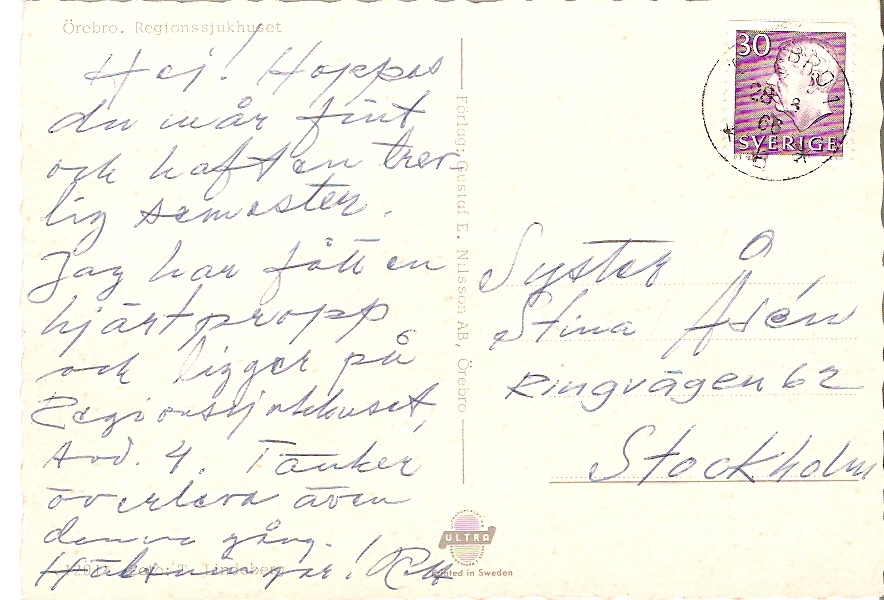 Örebro. Regionssjukhuset
Hej! Hoppas
du mår fint
och haft en trev
lig semester.
Jag har fått en
hjärtpropp
och ligger på
Regionssjukhuset,
Avd. 4. Tänker
överleva även
denna gång.
Hälsningar!
Förlag: Gustaf E. Nilsson AB, Örebro
30
SVERIGE
BRO 1
28
Syster
Stina Åsén
Ringvägen 62
Stockholm
ULTRA
Printed in Sweden